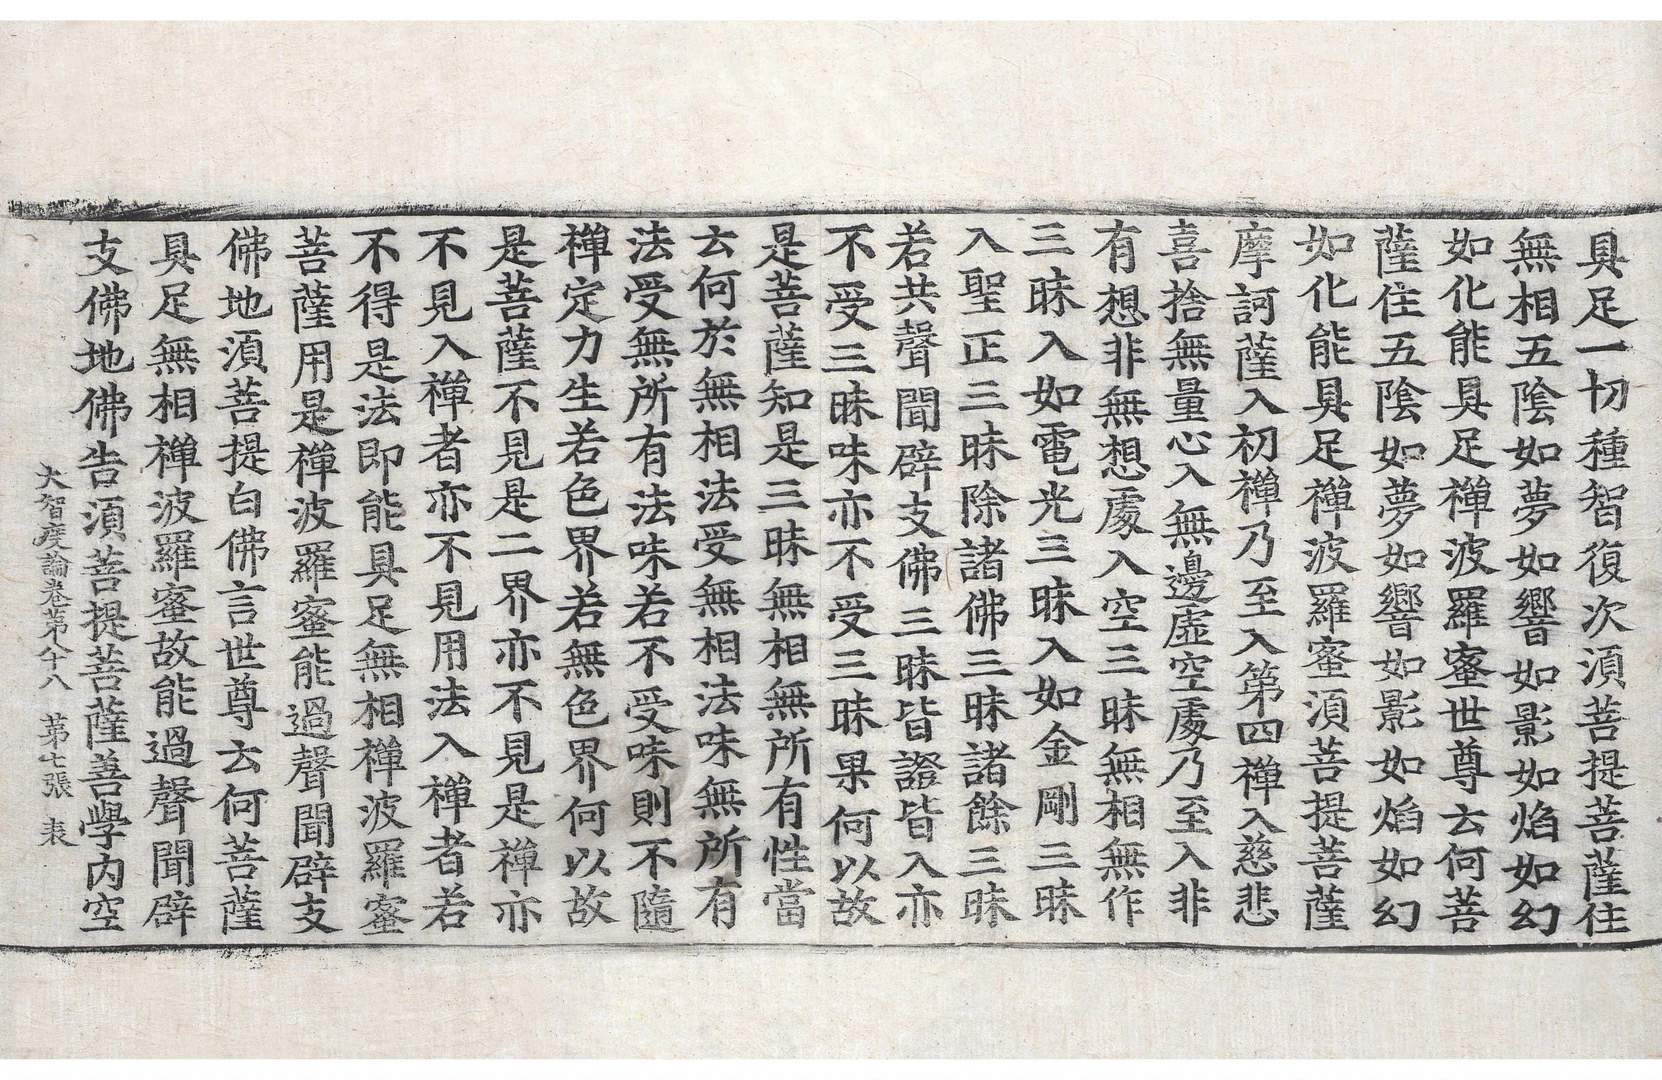 具足一切種智復次湏菩提菩薩住
無相五陰如夢如響如影如焰如幻
如化能具足禪波羅蜜世尊云何菩
薩住五陰如夢如響如影如焰如幻
如化能具足禪波羅蜜湏菩提菩薩
摩訶薩入初禪乃至入第四禪入慈悲
喜捨無量心入無邊虛空處乃至入非
有想非無想處入空三昧無相無作
三昧入如電光三昧入如金剛三昧
入聖正三昧除諸佛三昧諸餘三昧
若共聲聞辟支佛三昧皆證皆入亦
不受三昧味亦不受三昧果何以故
是菩薩知是三昧無相無所有性當
云何於無相法受無相法味無所有
法受無所有法味若不受味則不隨
禪定力生若色界若無色界何以故
是菩薩不見是二界亦不見是禪亦
不見入禪者亦不見用法入禪者若
不得是法即能具足無相禪波羅蜜
菩薩用是禪波羅蜜能過聲聞辟支
佛地湏菩提白佛言世尊云何菩薩
具足無相禪波羅蜜故能過聲聞辟
支佛地佛告湏菩提菩薩善學內空
大智度論卷第八十八 第七張 表